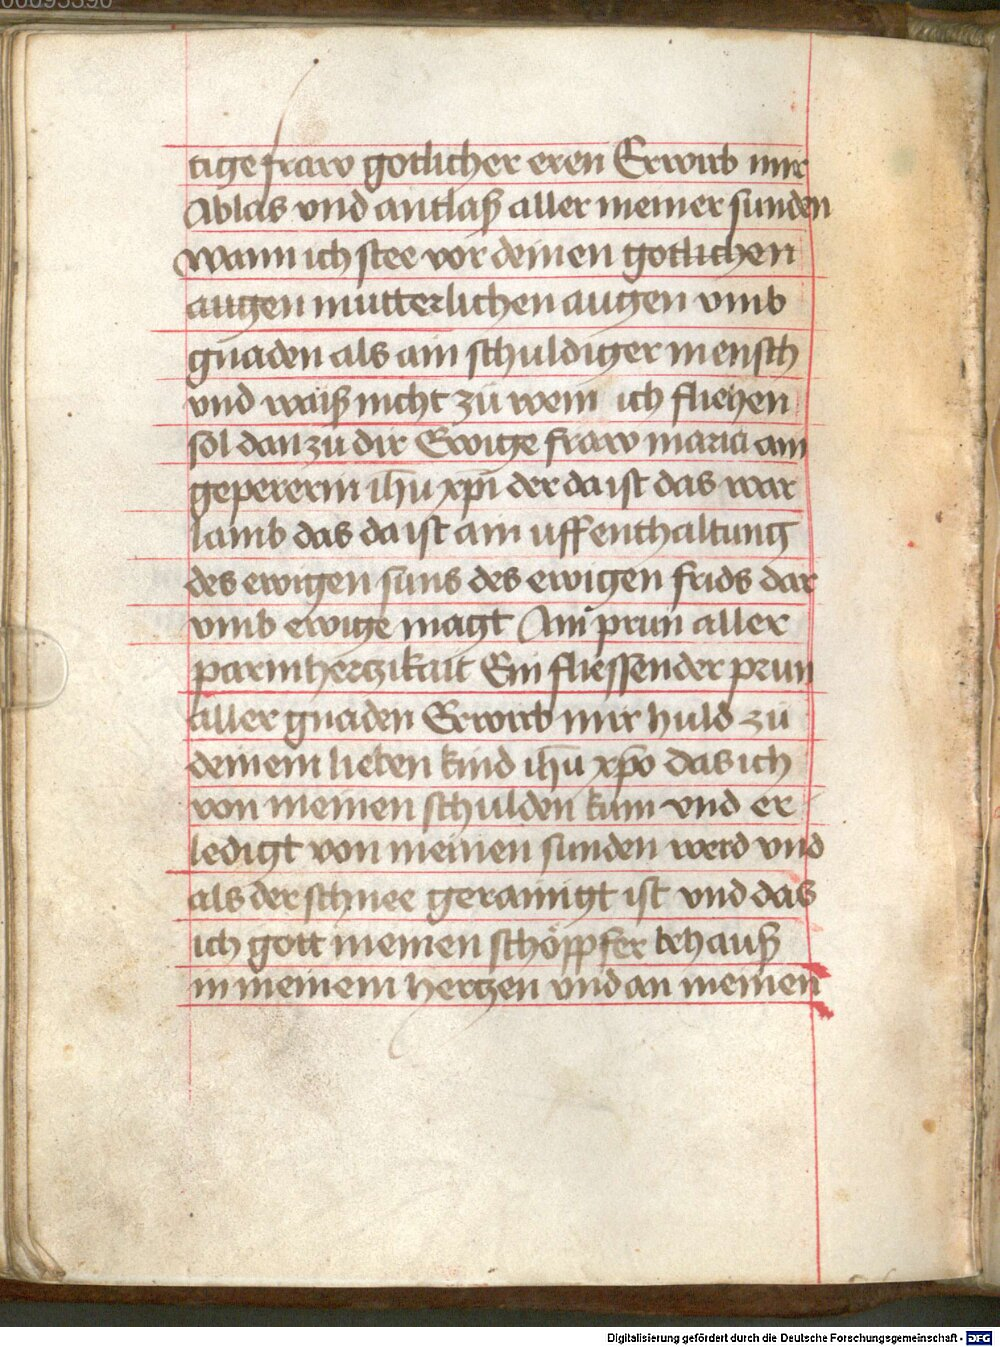 00095590
tige fraw gotlicher eren Erwirb mir
Ablas vnd antlaß aller meiner sunden
wann ich stee vor deinen gotlichen
augen mutterlichen augen vmb
gnaden als ain schuldiger mensch
vnd waiß nicht zů wem ich fliehen
sol dan zů dir Ewige fraw maria ain
gepererin ih̄u xp̄i der da ist das war
lamb das da ist ain uffenthaltung
des ewigen suns des ewigen frids dar
vmb ewige magt Ain prun aller
parmhertzikait Ein fliessender prun
aller gnaden Erwirb mir huld zů
deinem lieben kind ih̄u xp̄o das ich
von meinen schulden kum vnd er
ledigt von meinen sunden werd vnd
als der schnee gerainigt ist vnd das
ich gott meinen schöppfer behauß
in meinem hertzen vnd an meinen
Digitalisierung gefördert durch die Deutsche Forschungsgemeinschaft - DFG